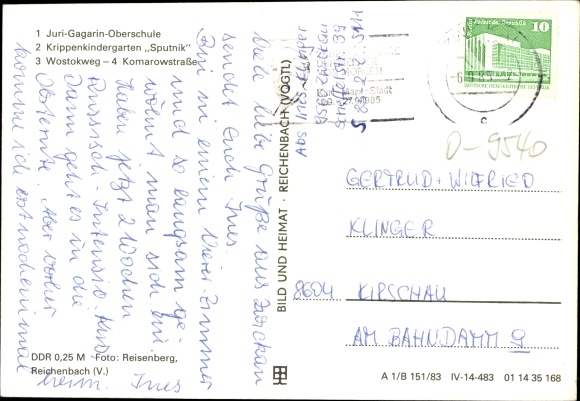 1 Juri-Gagarin-Oberschule
2 Krippenkindergarten „Sputnik"
3 Wostokweg – 4 Komarowstraße
Viele liebe Grüße aus Zwickau
sendet Euch Ines.
Bin in einem Vierer-Zimmer
und so langsam ge-
wöhnt man sich ein.
Haben jetzt 2 Wochen
Russisch-Intensiv-Kurs
Dann geht es in die
Obsternte. Aber vorher
komme ich erst noch einmal
heim. Ines
DDR 0,25 M Foto: Reisenberg,
Reichenbach (V.)
BILD UND HEIMAT · REICHENBACH (VOGTL)
Abs. Ines
10
DEUTSCHE DEMOKRATISCHE REPUBLIK
c
D-9540
GERTRUD + WILFRIED
KLINGER
8604 KIRSCHAU
AM BAHNDAMM 9
A 1/B 151/83 IV-14-483 01 14 35 168